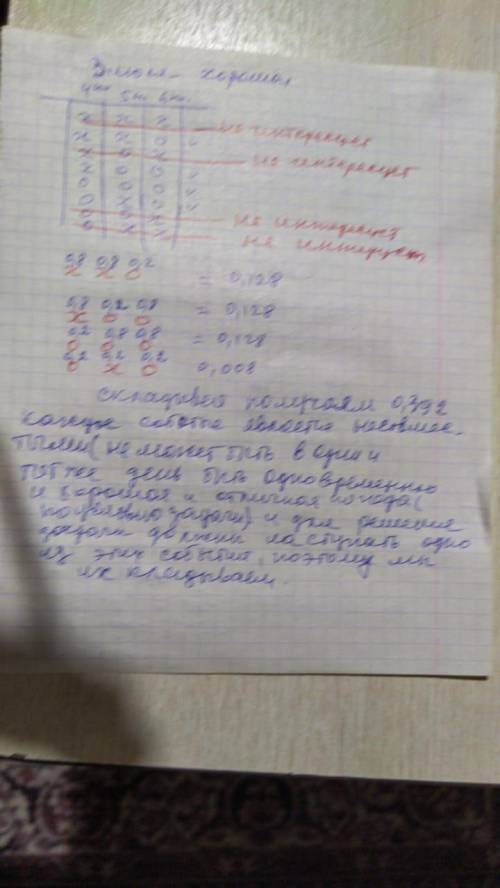 3 июля - хорошая
4 июл 5 июл 6 июл.
х х х — не интересует
х х о v
х о х — не интересует
х о о v
о о о v
о х о v
о о х — не интересует
о х х — не интересует
0,8 0,8 0,2
х х о = 0,128
0,8 0,2 0,8
х о о = 0,128
0,2 0,8 0,8
о о о = 0,128
0,2 0,2 0,2
о х о 0,008
складывая получаем 0,392
каждое событие является несовмес-
тными (не может быть в один и
тот же день быть одновременно
и хорошая и отличная погода (
по условию задачи) и для решения
задачи должны наступать одно
из этих событий, поэтому мы
их складываем.